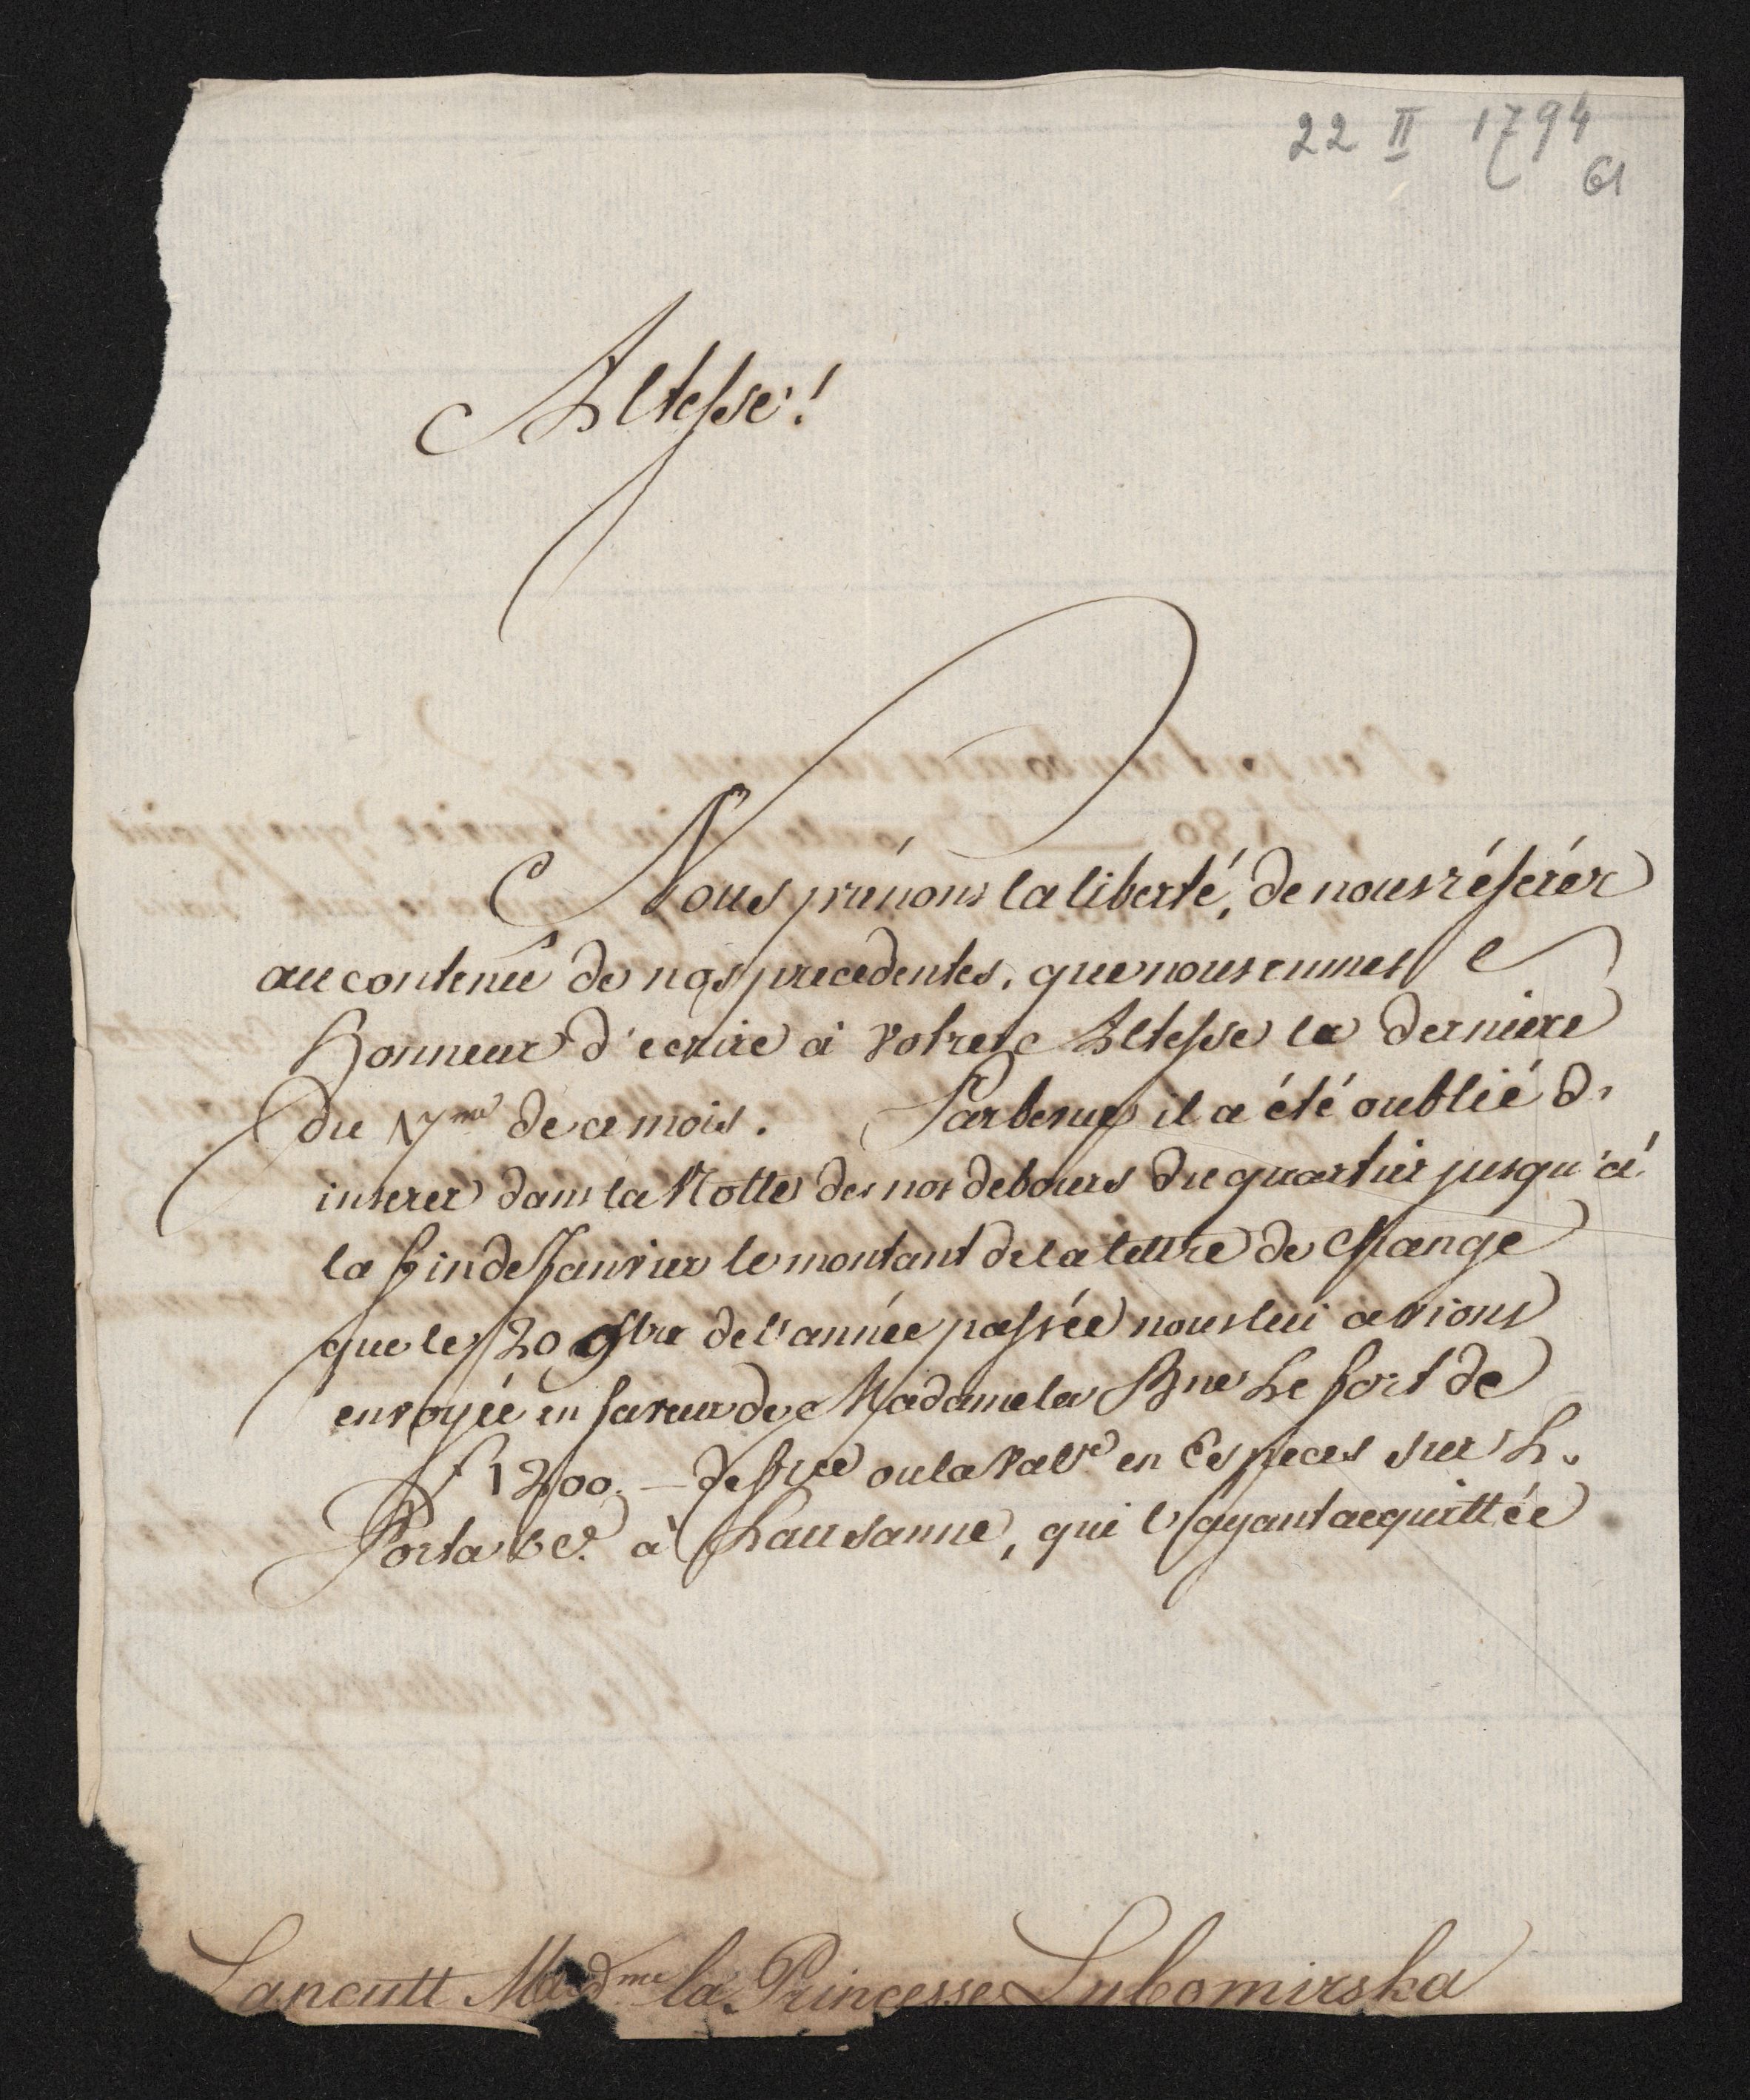 22 II 1794
61
Altesse!
Nous prénons la liberté, de nous référér
au contenû de nos precedentes, que nous eumes l
Honneur d'ecrire à Votre Altesse la derniere
du 17me de ce mois. Par bevue il a été oublié d'
inserer dans la Notte des nos debours du quartier jusqu'à
la fin de Janvier le montant de la lettre de Change
que le 20 9bre de l'année passée nous lui avions
envoyée en faveur de Madame la Bne Le fort de
f 1200. — de ou la Valr en Especes sur L.
Porta & C. à Lausanne, qui l'ayant acquittée
Lancutt Madme la Princesse Lubomirska